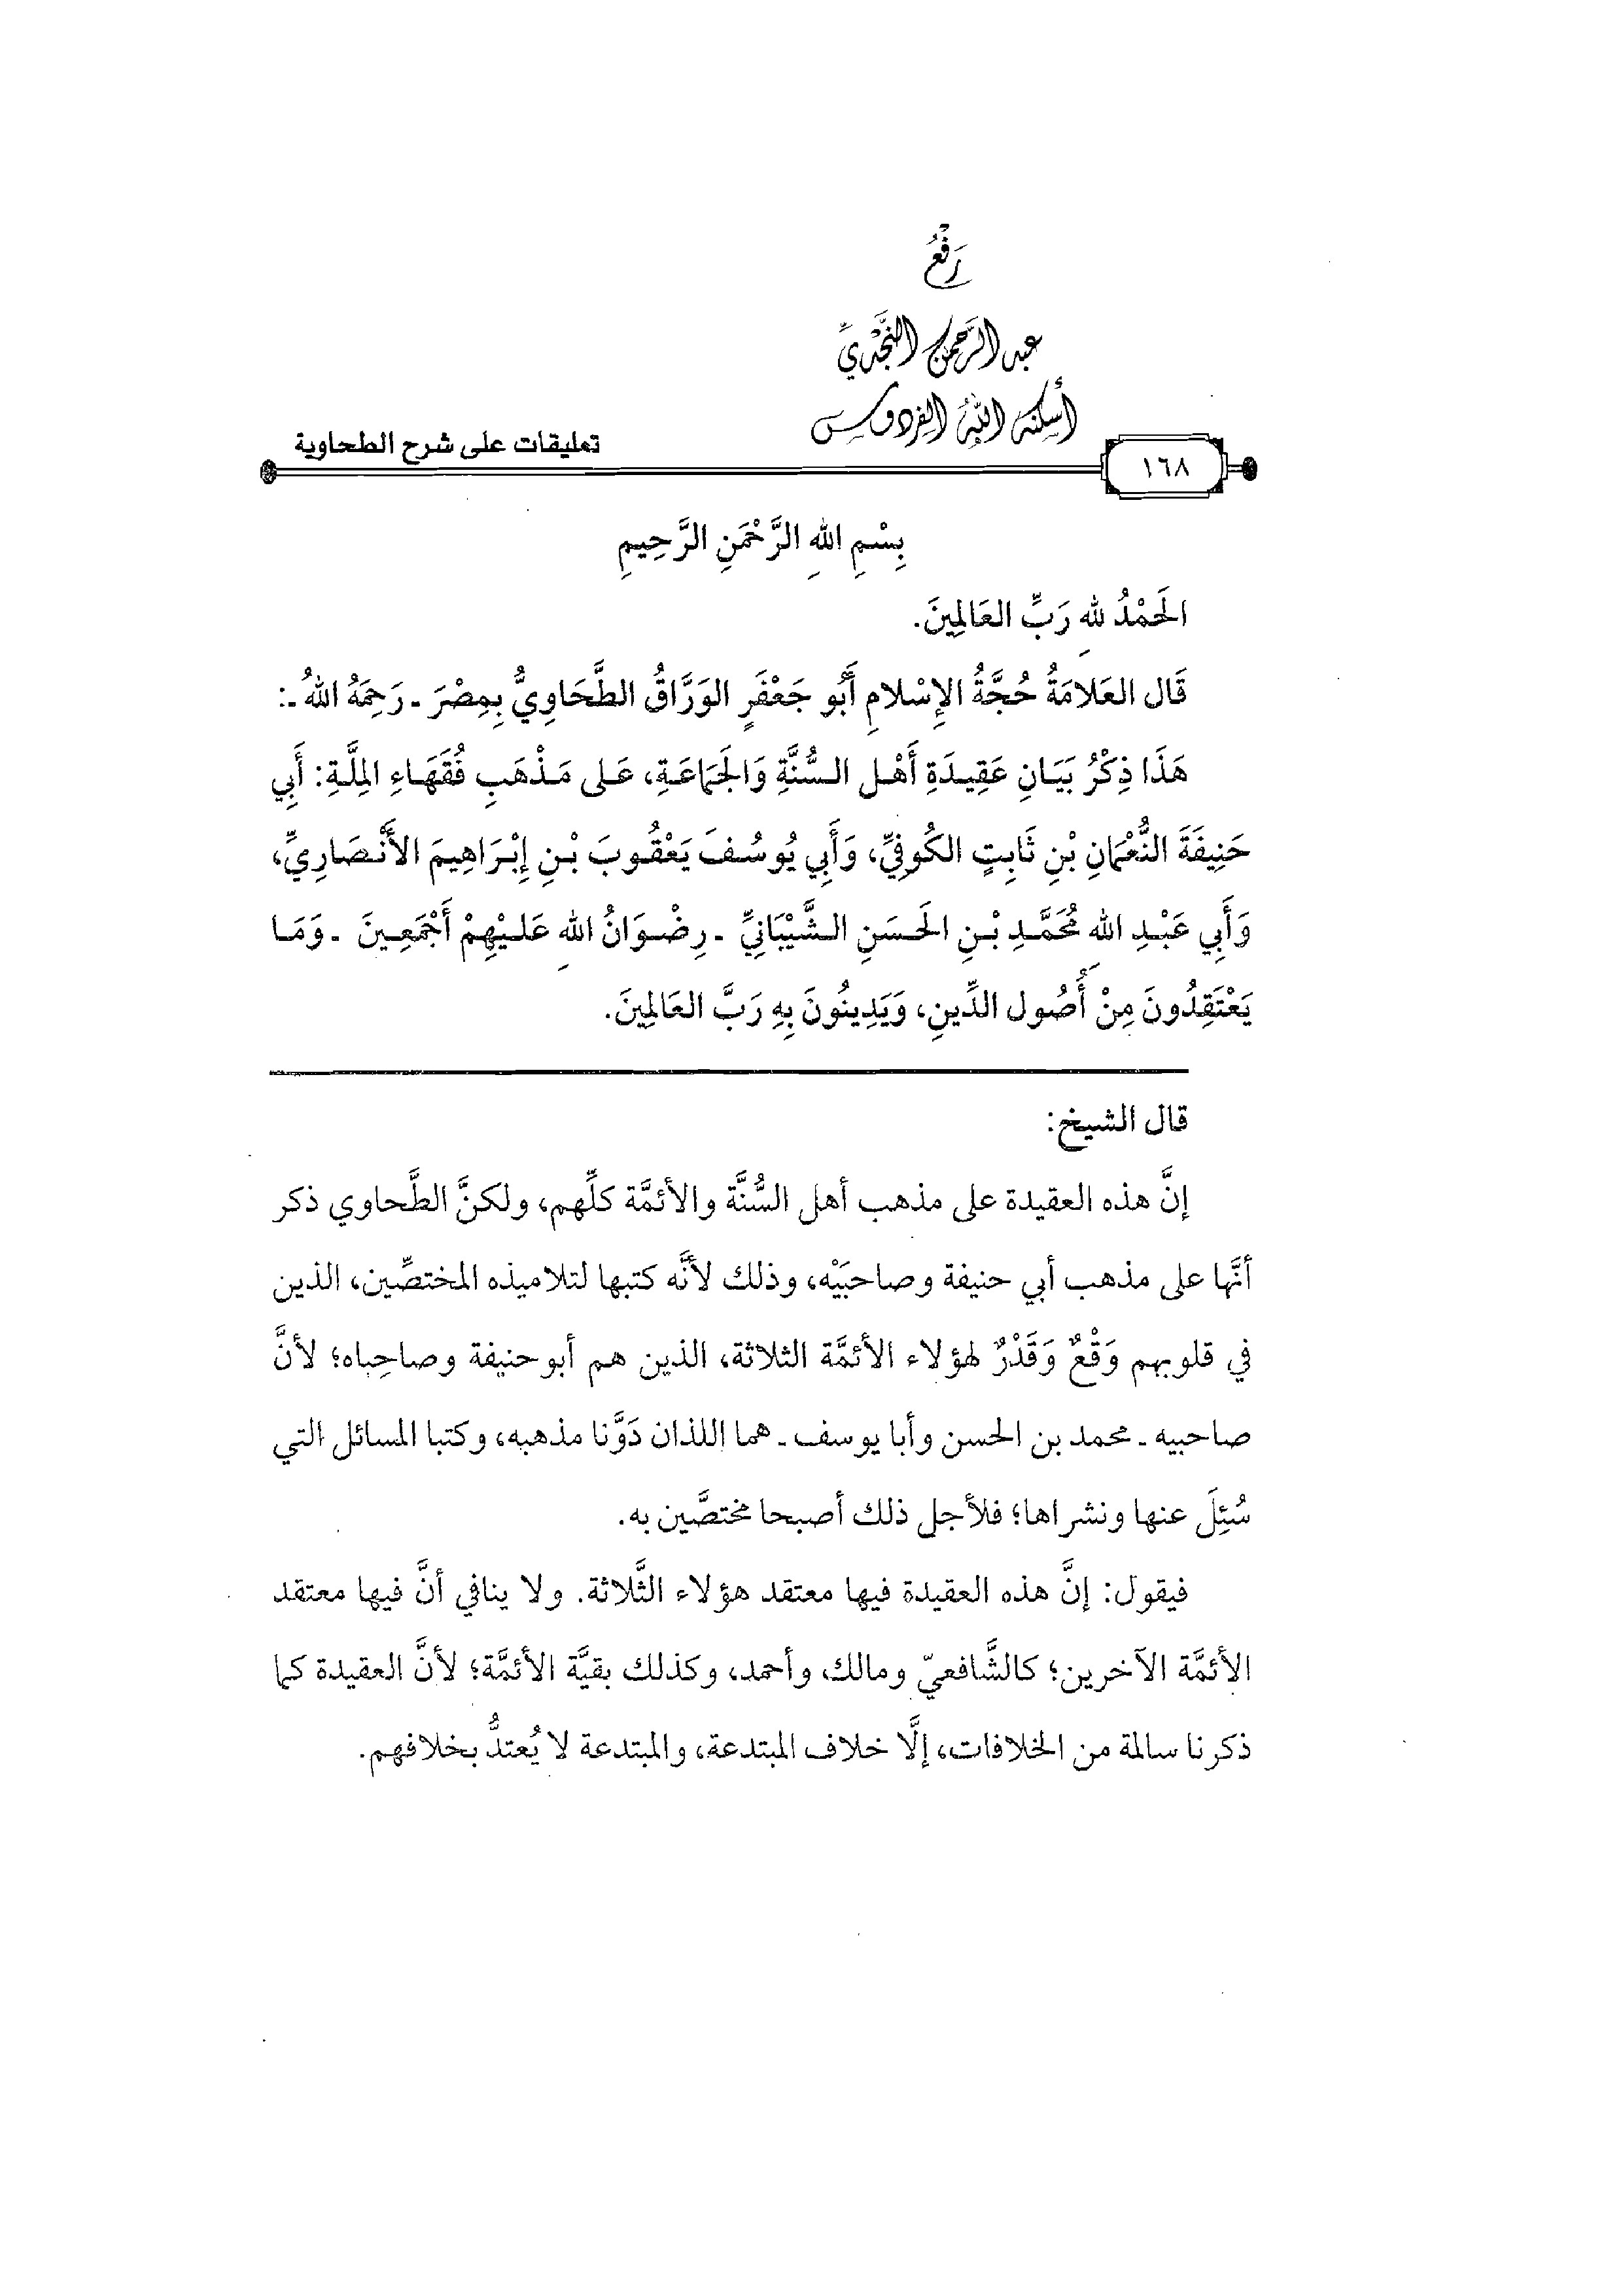 رَفْعُ
عبد الرَّحمن النَّجْديِّ
أسكنه اللهُ الفردوس
تعليقات على شرح الطحاوية
١٦٨
بِسْمِ اللهِ الرَّحْمَنِ الرَّحِيمِ
الحَمْدُ للهِ رَبِّ العَالمِينَ.
قَال العَلامَةُ حُجَّةُ الإِسْلامِ أَبُو جَعْفَرٍ الوَرَّاقُ الطَّحَاوِيُّ بِمِصْرَ ـ رَحِمَهُ اللهُ ـ:
هَذَا ذِكْرُ بَيَانِ عَقِيدَةِ أَهْل السُّنَّةِ وَالجَمَاعَةِ، عَلى مَذْهَبِ فُقَهَاءِ المِلَّةِ: أَبِي
حَنِيفَةَ النُّعْمَانِ بْنِ ثَابِتٍ الكُوفِيِّ، وَأَبِي يُوسُفَ يَعْقُوبَ بْنِ إِبْرَاهِيمَ الأَنْصَارِيِّ،
وَأَبِي عَبْدِ اللهِ مُحَمَّدِ بْنِ الحَسَنِ الشَّيْبَانِيِّ ـ رِضْوَانُ اللهِ عَليْهِمْ أَجْمَعِينَ ـ وَمَا
يَعْتَقِدُونَ مِنْ أُصُول الدِّينِ، وَيَدِينُونَ بِهِ رَبَّ العَالمِينَ.
قال الشيخ:
إنَّ هذه العقيدة على مذهب أهل السُّنَّة والأئمَّة كلِّهم، ولكنَّ الطَّحاوي ذكر
أنَّها على مذهب أبي حنيفة وصاحبَيْه، وذلك لأنَّه كتبها لتلاميذه المختصِّين، الذين
في قلوبهم وَقْعٌ وَقَدْرٌ لهؤلاء الأئمَّة الثلاثة، الذين هم أبو حنيفة وصاحِباه؛ لأنَّ
صاحبيه ـ محمد بن الحسن وأبا يوسف ـ هما اللذان دَوَّنا مذهبه، وكتبا المسائل التي
سُئِلَ عنها ونشراها؛ فلأجل ذلك أصبحا مختصَّين به.
فيقول: إنَّ هذه العقيدة فيها معتقد هؤلاء الثَّلاثة. ولا ينافي أنَّ فيها معتقد
الأئمَّة الآخرين؛ كالشَّافعيّ ومالك، وأحمد، وكذلك بقيَّة الأئمَّة؛ لأنَّ العقيدة كما
ذكرنا سالمة من الخلافات، إلَّا خلاف المبتدعة، والمبتدعة لا يُعتدُّ بخلافهم.